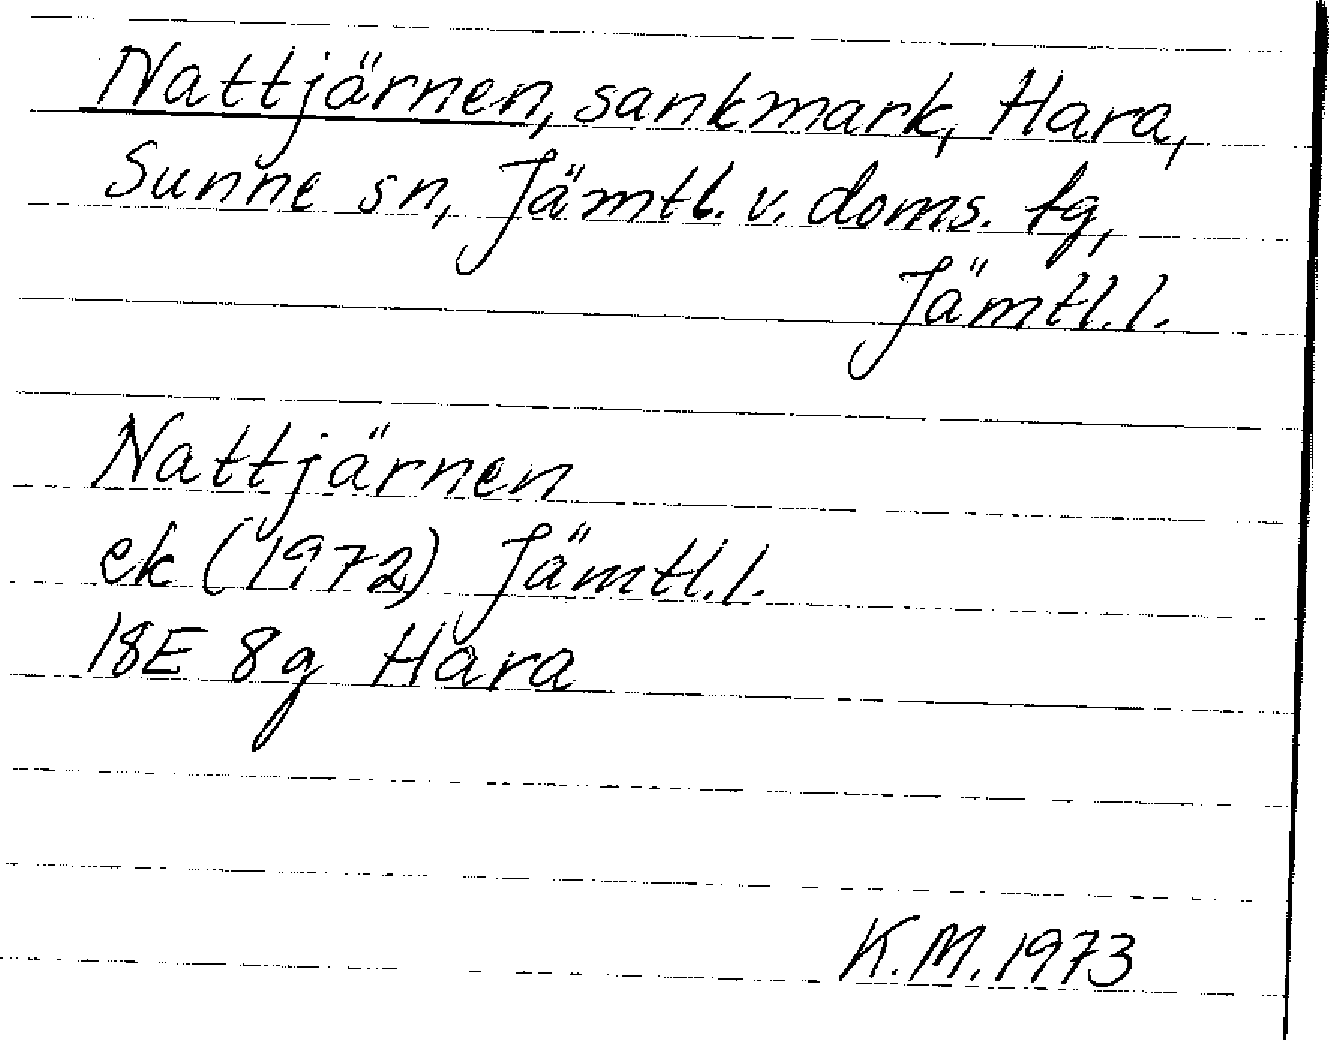 Nattjärnen, sankmark, Hara,
Sunne sn, Jämtl. v. doms. tg,
Jämtl. l.
Nattjärnen
ek (1972) Jämtl. l.
18E 8g Hara
K.M. 1973